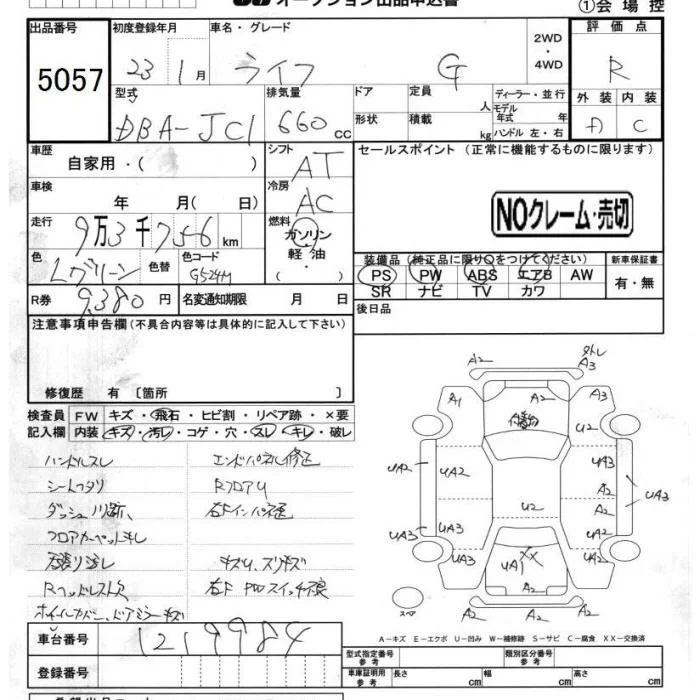 オークション出品申込書
①会場控
出品番号
5057
初度登録年月
23 1月
車名・グレード
ライフ G
2WD
・
4WD
評価点
R
型式
DBA-JC1
排気量
660 cc
ドア
形状
定員
人
積載
kg
ディーラー・並行
モデル
年式 年
ハンドル 左・右
外装 内装
D C
車歴
自家用・( )
シフト
AT
セールスポイント (正常に機能するものに限ります)
車検
年 月( 日)
冷房
AC
NOクレーム・売切
走行
9万3千756 km
燃料
ガソリン
軽油
( ・ )
色
Lグリーン
色替
色コード
G524M
装備品(純正品に限り○をつけてください)
PS PW ABS エアB AW
SR ナビ TV カワ
新車保証書
有・無
R券
9380円
名変通知期限 月 日
後日品
注意事項申告欄(不具合内容等は具体的に記入して下さい)
修復歴 有 〔箇所 〕
検査員
記入欄
FW キズ・飛石・ヒビ割・リペア跡・×要
内装 キズ・汚レ・コゲ・穴・スレ・キレ・破レ
ハンドルスレ
エンドパネル修正
シートヘタリ
RフロアU
フロアカーペット汚レ
天張り汚レ
キズU,スリキズ
右F PWスイッチ不良
ホイールカバー、ドアミラーキズ
A2
外レ
A3
A1
A2
A3
U2
UA2
UA2
UA3
A2
UA3
U2
A2
UA3
UA3
UA2
UA1
XX
UA3
A2
A2
A2
スペア
A-キズ E-エクボ U-凹み W-補修跡 S-サビ C-腐食 XX-交換済
車台番号
1219984
登録番号
型式指定番号
参考
類別区分番号
参考
車庫証明用
参考
長さ cm
幅 cm
高さ cm